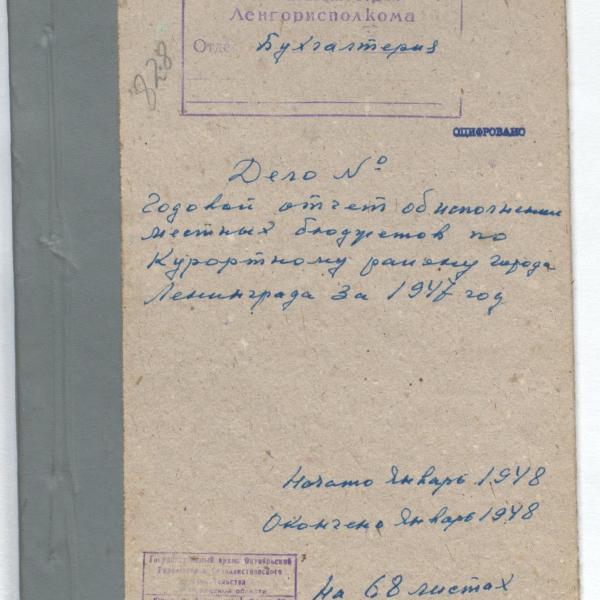 Ленгорисполкома
Отде Бухгалтерия
828
ОЦИФРОВАНО
Дело №
Годовой отчет об исполнении
местных бюджетов по
Курортному району города
Ленинграда за 1947 год
Начато Январь 1948
Окончено Январь 1948
Государственный архив Октябрьской
Революции и Социалистического
На 68 листах